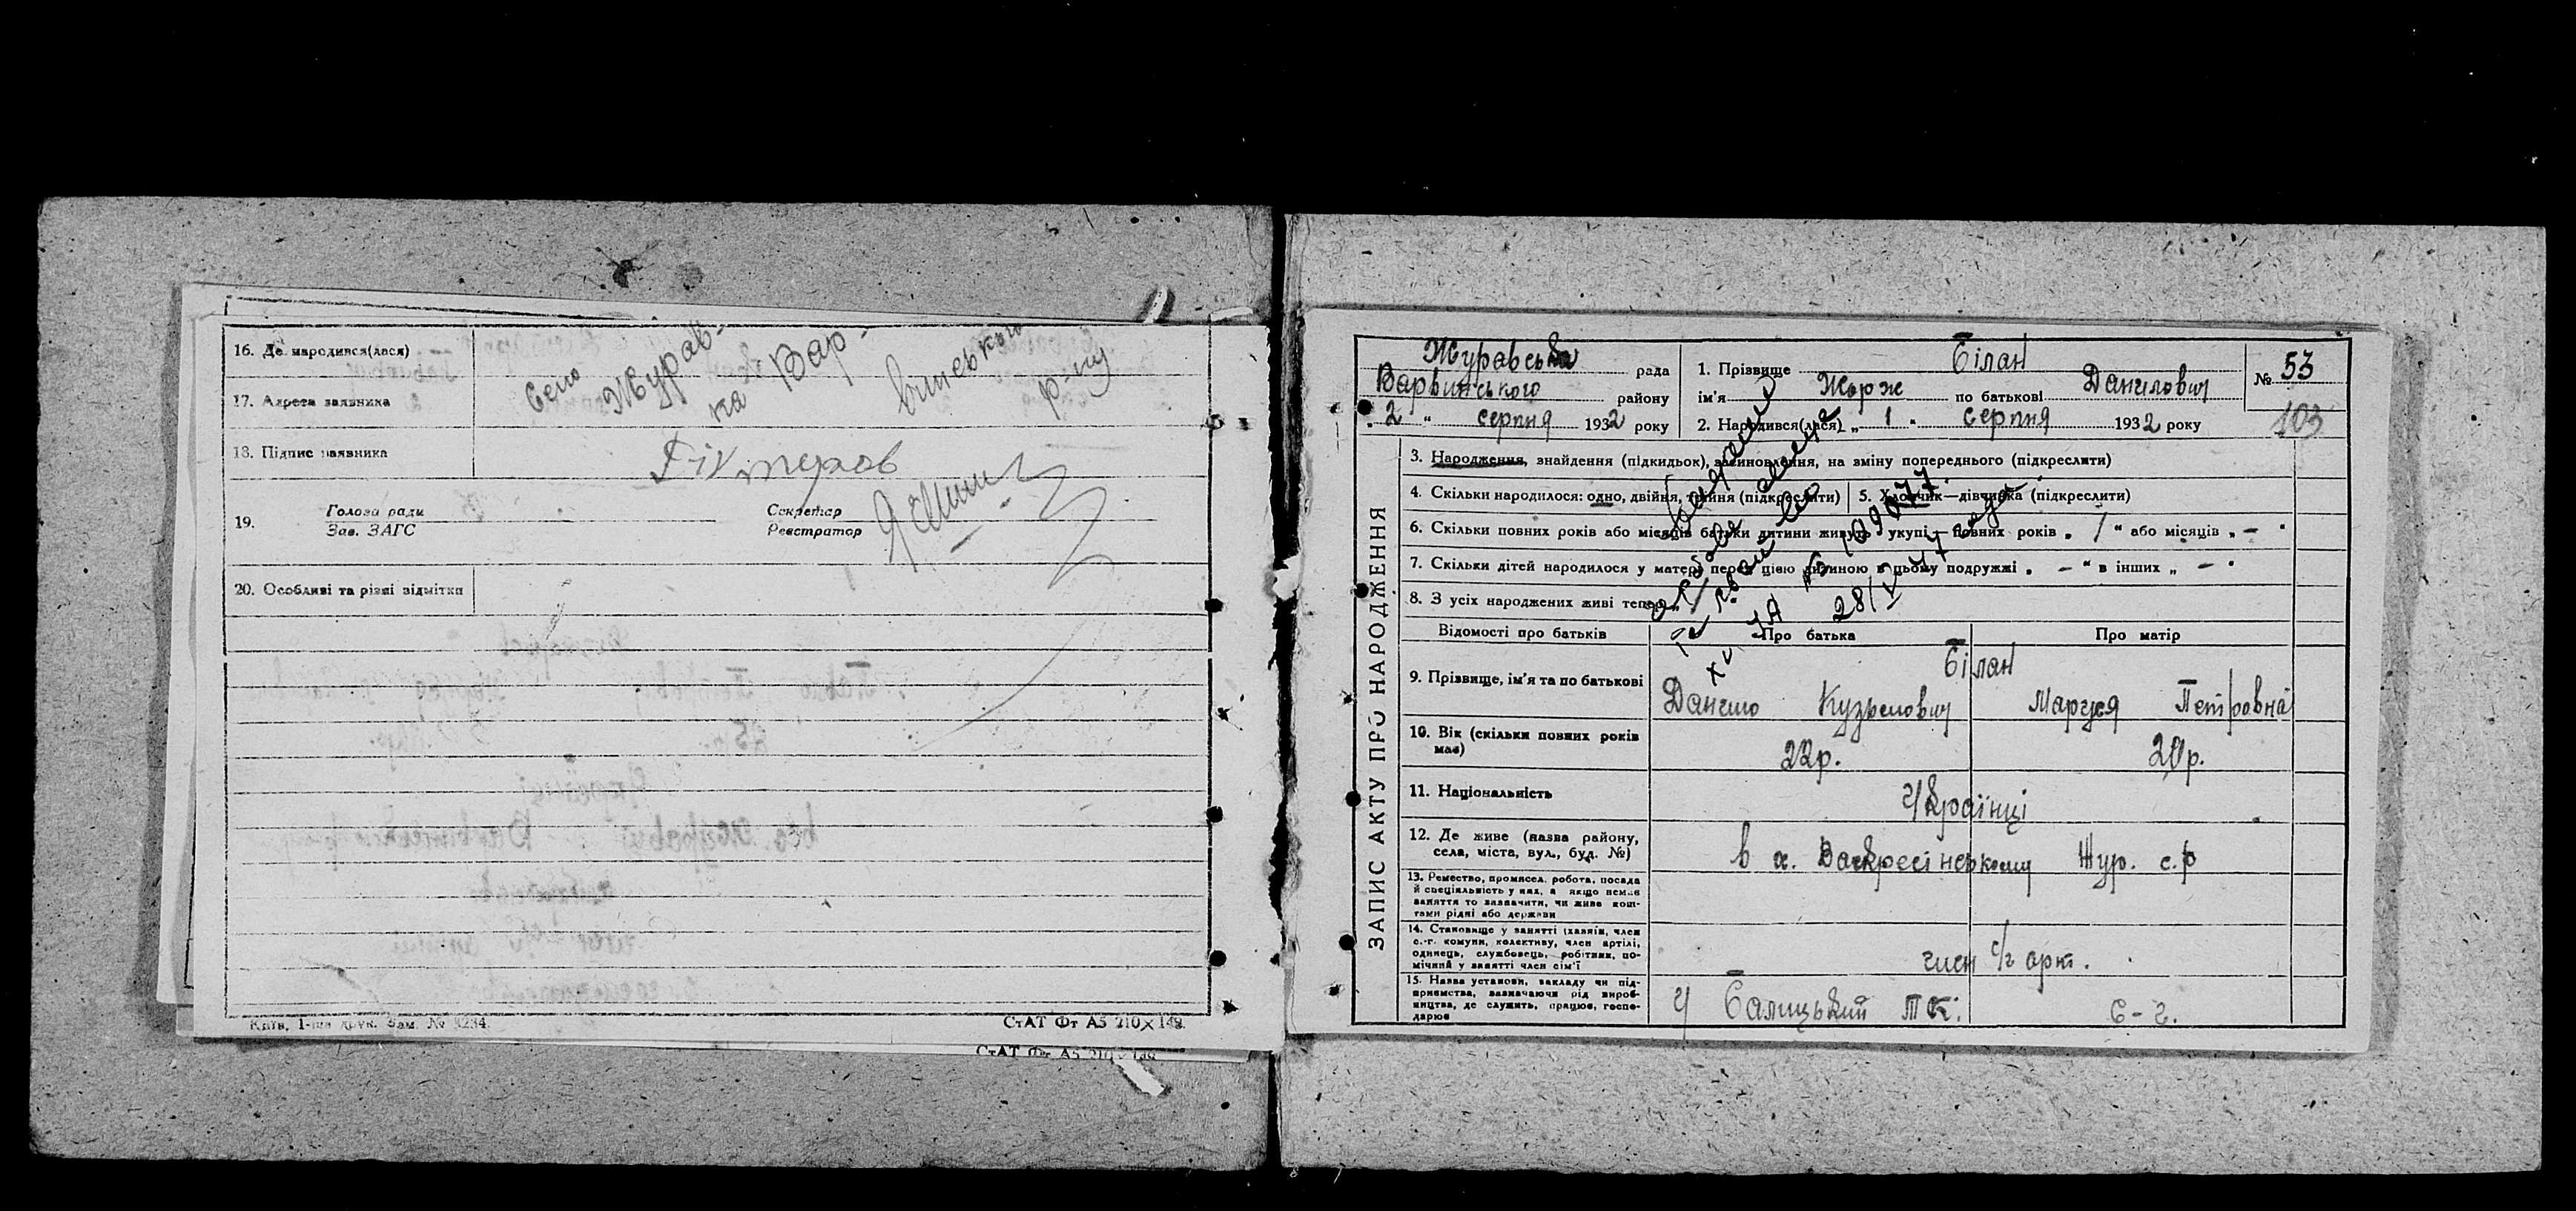 16. Де народився(лася)
17. Адреса заявника
Село Журав-
ка Вар-
винського
р-ну
18. Підпис заявника
19. Голова ради
Зав. ЗАГС
Секретар
Реєстратор
20. Особливі та різні відмітки
Київ, 1-ша друк. Зам. №
СтАТ Фт А5 210×149.
СтАТ Фт А5 210
ЗАПИС АКТУ ПРО НАРОДЖЕННЯ
Журавська рада
Варвинського району
"2" серпня 1932 року
1. Прізвище Білан
ім'я Жорж по батькові Данилович
2. Народився(лася) "1" серпня 1932 року
№ 53
103
3. Народження, знайдення (підкидьок), всиновлення, на зміну попереднього (підкреслити)
4. Скільки народилося: одно, двійня, трійня (підкреслити)
5. Хлопчик—дівчинка (підкреслити)
6. Скільки повних років або місяців батьки дитини живуть укупі—повних років „ 1 " або місяців „ — "
7. Скільки дітей народилося у матері перед цією дитиною в цьому подружжі „ — " в інших „ — "
8. З усіх народжених живі тепер
№ 169077
28/V 47 года
Відомості про батьків
Про батька
Про матір
9. Прізвище, ім'я та по батькові
Білан
Данило Кузьмович
Маруся Петровна
10. Вік (скільки повних років має)
22р.
20р.
11. Національність
Українці
12. Де живе (назва району,
села, міста, вул., буд. №)
в х. Васкресінському Жур. с.р
13. Ремество, промисел, робота, посада
й спеціальність у них, а якщо немає
заняття то зазначити, чи живе кош-
тами рідні або держави
14. Становище у занятті (хазяїн, член
с.-г. комуни, колективу, член артілі,
одинець, службовець, робітник, по-
мічний у занятті член сім'ї
член с/г арт.
15. Назва установи, закладу чи під-
приємства, зазначаючи рід вироб-
ництва, де служить, працює, госпо-
дарює
с-г.